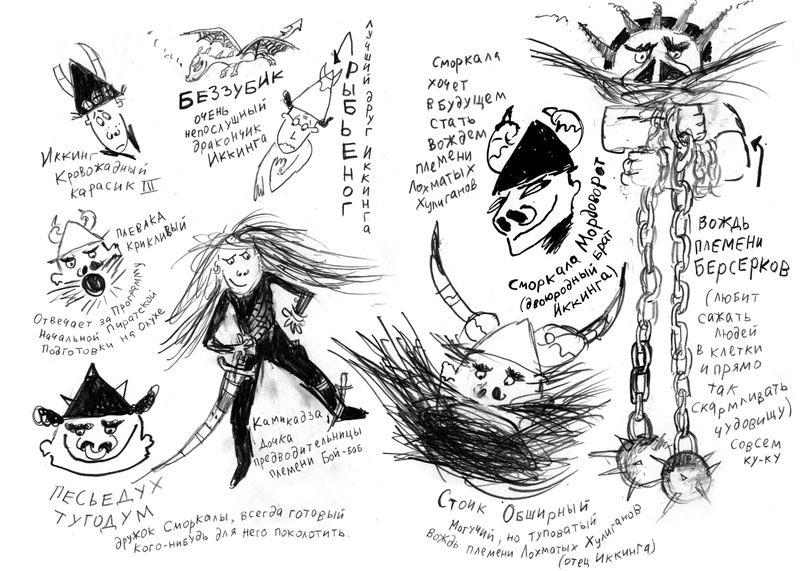 Иккинг
Кровожадный
карасик III
Беззубик
очень
непослушный
дракончик
Иккинга
Рыбьеног
лучший друг Иккинга
Плевака
Крикливый
Отвечает за Программу
Начальной Пиратской
Подготовки на Олухе
Песьедух
Тугодум
дружок Сморкалы, всегда готовый
кого-нибудь для него поколотить.
Камикадза
дочка
предводительницы
племени Бой-баб
Сморкала
хочет
в будущем
стать
вождем
племени
Лохматых
Хулиганов
Сморкала Мордоворот
(двоюродный брат
Иккинга)
Стоик Обширный
Могучий, но туповатый
вождь племени Лохматых Хулиганов
(отец Иккинга)
Вождь
племени
Берсерков
(любит
сажать
людей
в клетки
и прямо
так
скармливать
чудовищу)
совсем
ку-ку